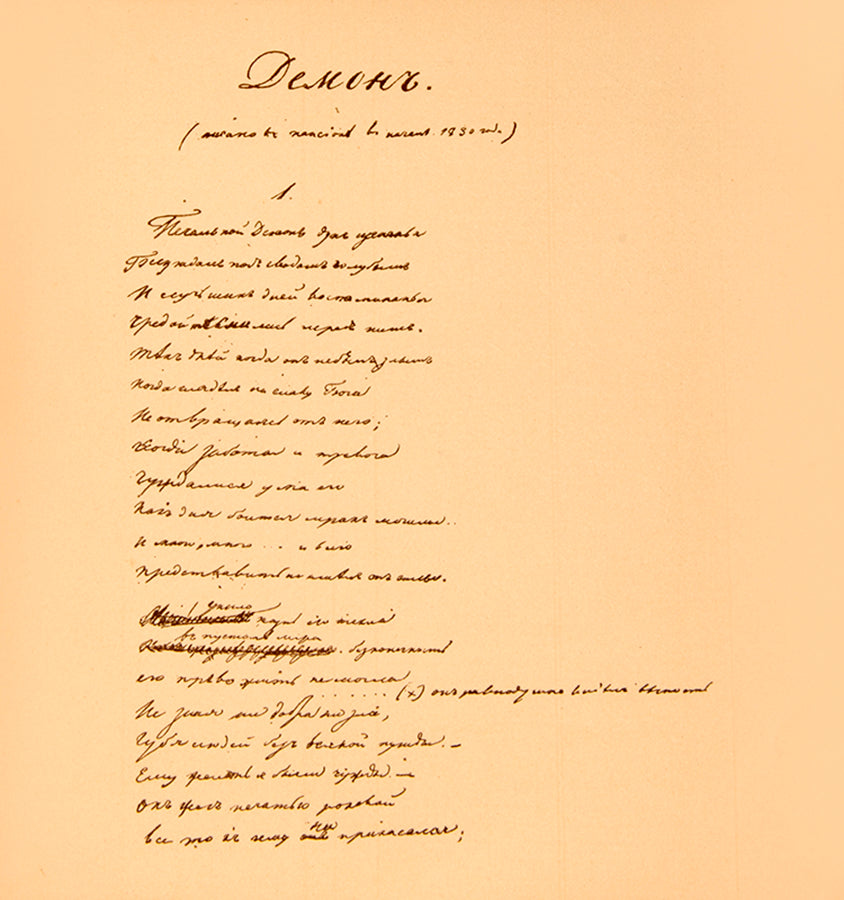 Демонъ.
(писано въ пансіонѣ въ началѣ 1830 года)
1.
Печальной Демонъ духъ изгнанья
Блуждалъ подъ сводомъ голубымъ
И лучшихъ дней воспоминанья
Чредой тѣснились передъ нимъ.
Тѣхъ дней когда онъ не былъ злымъ
Когда глядѣлъ на славу Бога
Не отвращаясь отъ него;
Когда забота и тревога
Чуждалися ума его
Какъ дня боится мракъ могилы..
И много, много ... и всего
Представить не имѣлъ онъ силы.
Уныло жизнь его текла
въ пустынѣ мира. безконечность
его тревожить не могла
....... (х) онъ равнодушно видѣлъ вѣчность
Не зная ни добра ни зла,
Губя людей безъ всякой нужды. —
Ему желанья были чужды. —
Онъ жегъ печатью роковой
все то къ чему ни прикасался;